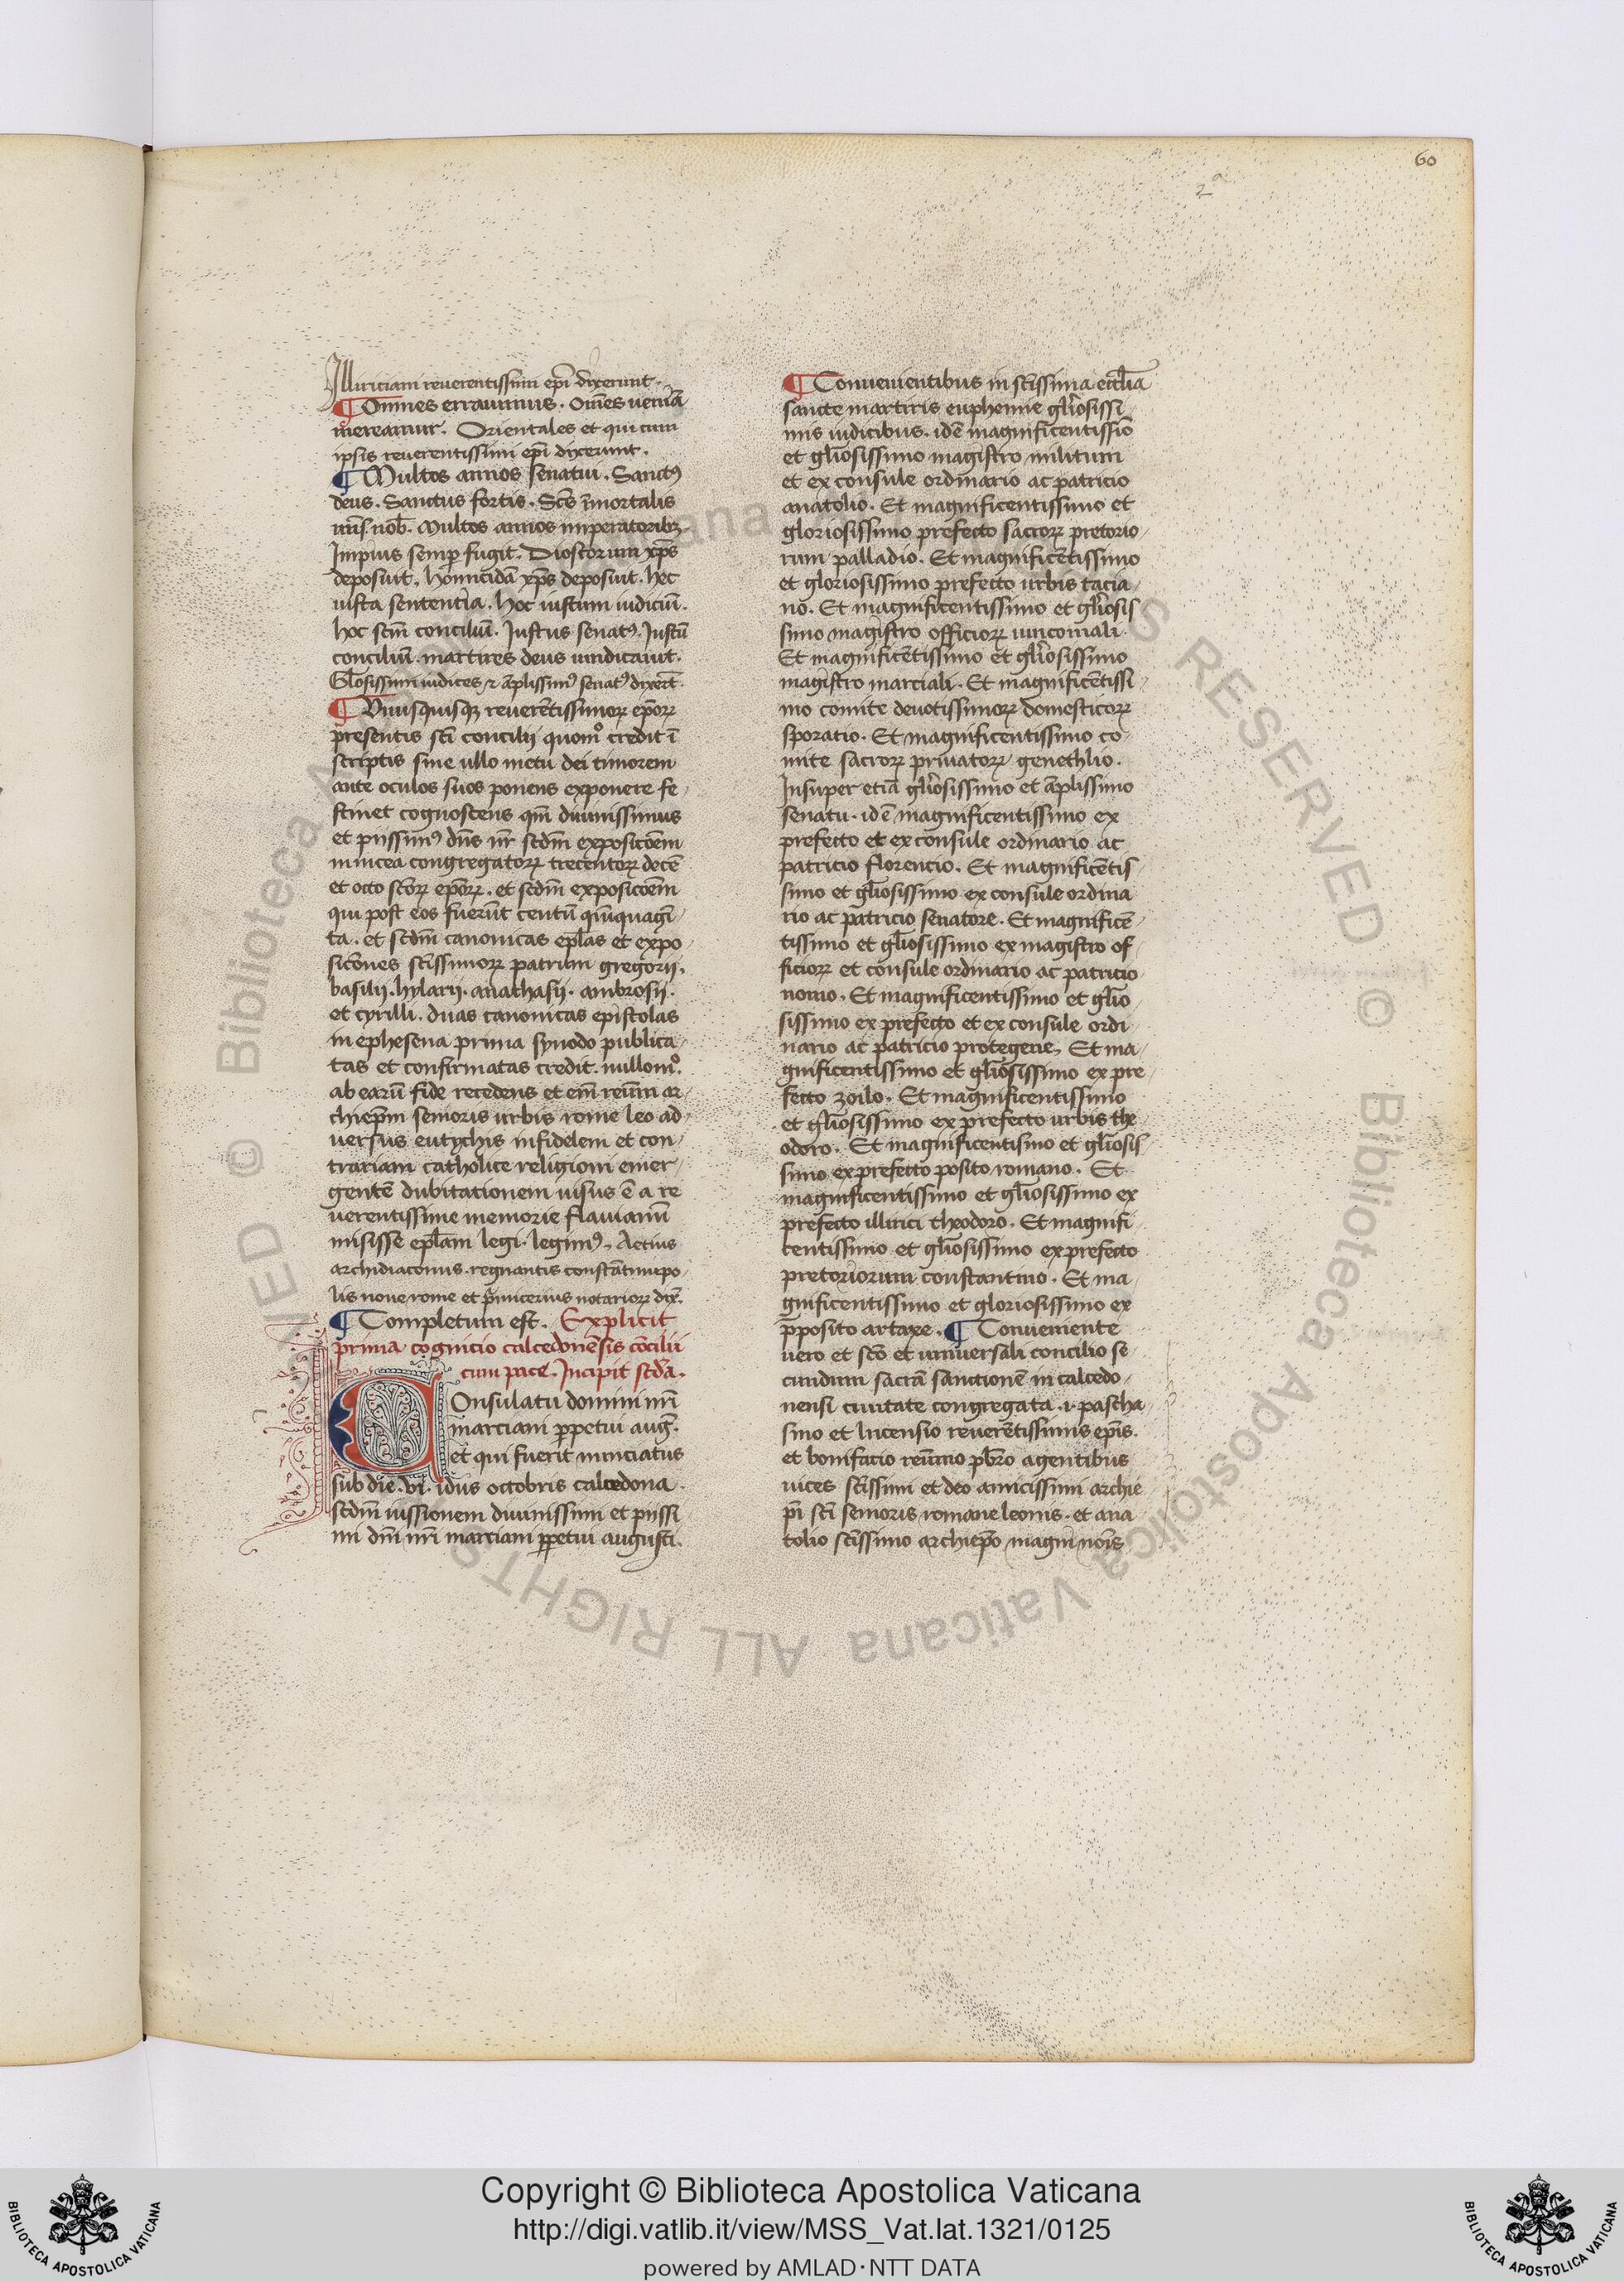 60
2ª
Illiriciani reuerentissimi ep̄i dixerunt.
¶ Omnes errauimus. Om̄es ueniā
mereamur. Orientales et qui cum
ipsis reuerentissimi ep̄i dixerunt.
¶ Multos annos senatui. Sanctꝰ
deus. Sanctus fortis. Sc̄s īmortalis
mis̄. nob̄. Multos annos imperatoribꝫ.
Impius semꝑ fugit. Dioscorum xp̄s
deposuit. homicidā xp̄s deposuit. hec
iusta sententia. hoc iustum iudiciū.
hoc sc̄m conciliū. Iustus senatꝰ. Iustū
conciliū. martires deus uindicauit.
Gl̄osissimi iudices ⁊ āplissimꝰ senatꝰ dixer̄t.
¶ Vnusquisqꝫ reuerētissimoꝝ ep̄oꝝ
presentis sc̄i concilij quomº credit ī
scriptis sine ullo metu dei timorem
ante oculos suos ponens exponere fe
stinet cognoscens qm̄ diuinissimus
et piissimꝰ dn̄s nr̄ scdm̄ exposicōem
in nicea congregatoꝝ trecentoꝝ decē
et octo sc̄oꝝ ep̄oꝝ. et scdm̄ exposicōem
qui post eos fuerūt centū quīquagī
ta. et scdm̄ canonicas epl̄as et expo
sicōnes sc̄issimoꝝ patrum gregorij.
basilij. hylarij. anathasij. ambrosij.
et cyrilli. duas canonicas epistolas
in ephesena prima synodo publica
tas et confirmatas credit. nullomº
ab earū fide recedens et em̄ reūm ar
chiep̄m senioris urbis rome leo ad
uersus eutychis infidelem et con
trariam catholice religioni emer
gentē dubitationem uisus ē a re
uerentissime memorie flauianū
misisse epl̄am legi. legimꝰ. Aetius
archidiaconus. regnantis constātinopo
lis noue rome et p̄micerius notarioꝝ dix̄.
¶ Completum est. Explicit
prima cognicio calcedonēsis cōcilii
cum pace. Incipit scd̄a.
COnsulatu domini nr̄i
marciani ꝑpetui auḡ.
et qui fuerit nunciatus
sub die. vi. idus octobris calcedona.
scdm̄ iussionem diuinissimi et piissi
mi dn̄i nr̄i marciani ꝑpetui augusti.
¶ Conuenientibus in sc̄issima eccl̄ia
sancte martiris euphemie gl̄iosissi
mis iudicibus. idē magnificentissīo
et gl̄iosissimo magistro militum
et ex consule ordinario ac patricio
anatolio. Et magnificentissimo et
gloriosissimo prefecto sacroꝝ pretorio
rum palladio. Et magnificētissimo
et gloriosissimo prefecto urbis tacia
no. Et magnificentissimo et gl̄iosis
simo magistro officioꝝ uincomali.
Et magnificētissimo et gl̄iosissimo
magistro marciali. Et magnificētissi
mo comite deuotissimoꝝ domesticoꝝ
sporatio. Et magnificentissimo co
mite sacroꝝ priuatoꝝ genethlio.
Insuper etiā gl̄iosissimo et āplissimo
senatu. idē magnificentissimo ex
prefecto et ex consule ordinario ac
patricio florencio. Et magnificētis
simo et gl̄iosissimo ex consule ordina
rio ac patricio senatore. Et magnificē
tissimo et gl̄iosissimo ex magistro of
ficioꝝ et consule ordinario ac patricio
nomo. Et magnificentissimo et gl̄io
sissimo ex prefecto et ex consule ordi
nario ac patricio protegene. Et ma
gnificentissimo et gl̄iosissimo ex pre
fecto zoilo. Et magnificentissimo
et gl̄iosissimo ex prefecto urbis the
odoro. Et magnificentisimo et gl̄iosis
simo ex prefecto posito romano. Et
magnificentissimo et gl̄iosissimo ex
prefecto illirici theodoro. Et magnifi
centissimo et gl̄iosissimo ex prefecto
pretoriorum constantino. Et ma
gnificentissimo et gloriosissimo ex
p̄posito artaxe. ¶ Conueniente
uero et sc̄o et uniuersali concilio se
cundum sacrā sanctionē in calcedo
nensi ciuitate congregata. i. pascha
sino et lucensio reuerētissimis ep̄is.
et bonifacio reūmo pb̄ro agentibus
uices sc̄issimi et deo amicissimi archie
pī sc̄i senioris romane leonis. et ana
tolio sc̄issimo archiep̄o magni nōis
Copyright © Biblioteca Apostolica Vaticana
http://digi.vatlib.it/view/MSS_Vat.lat.1321/0125
powered by AMLAD·NTT DATA
BIBLIOTECA APOSTOLICA VATICANA
BIBLIOTECA APOSTOLICA VATICANA